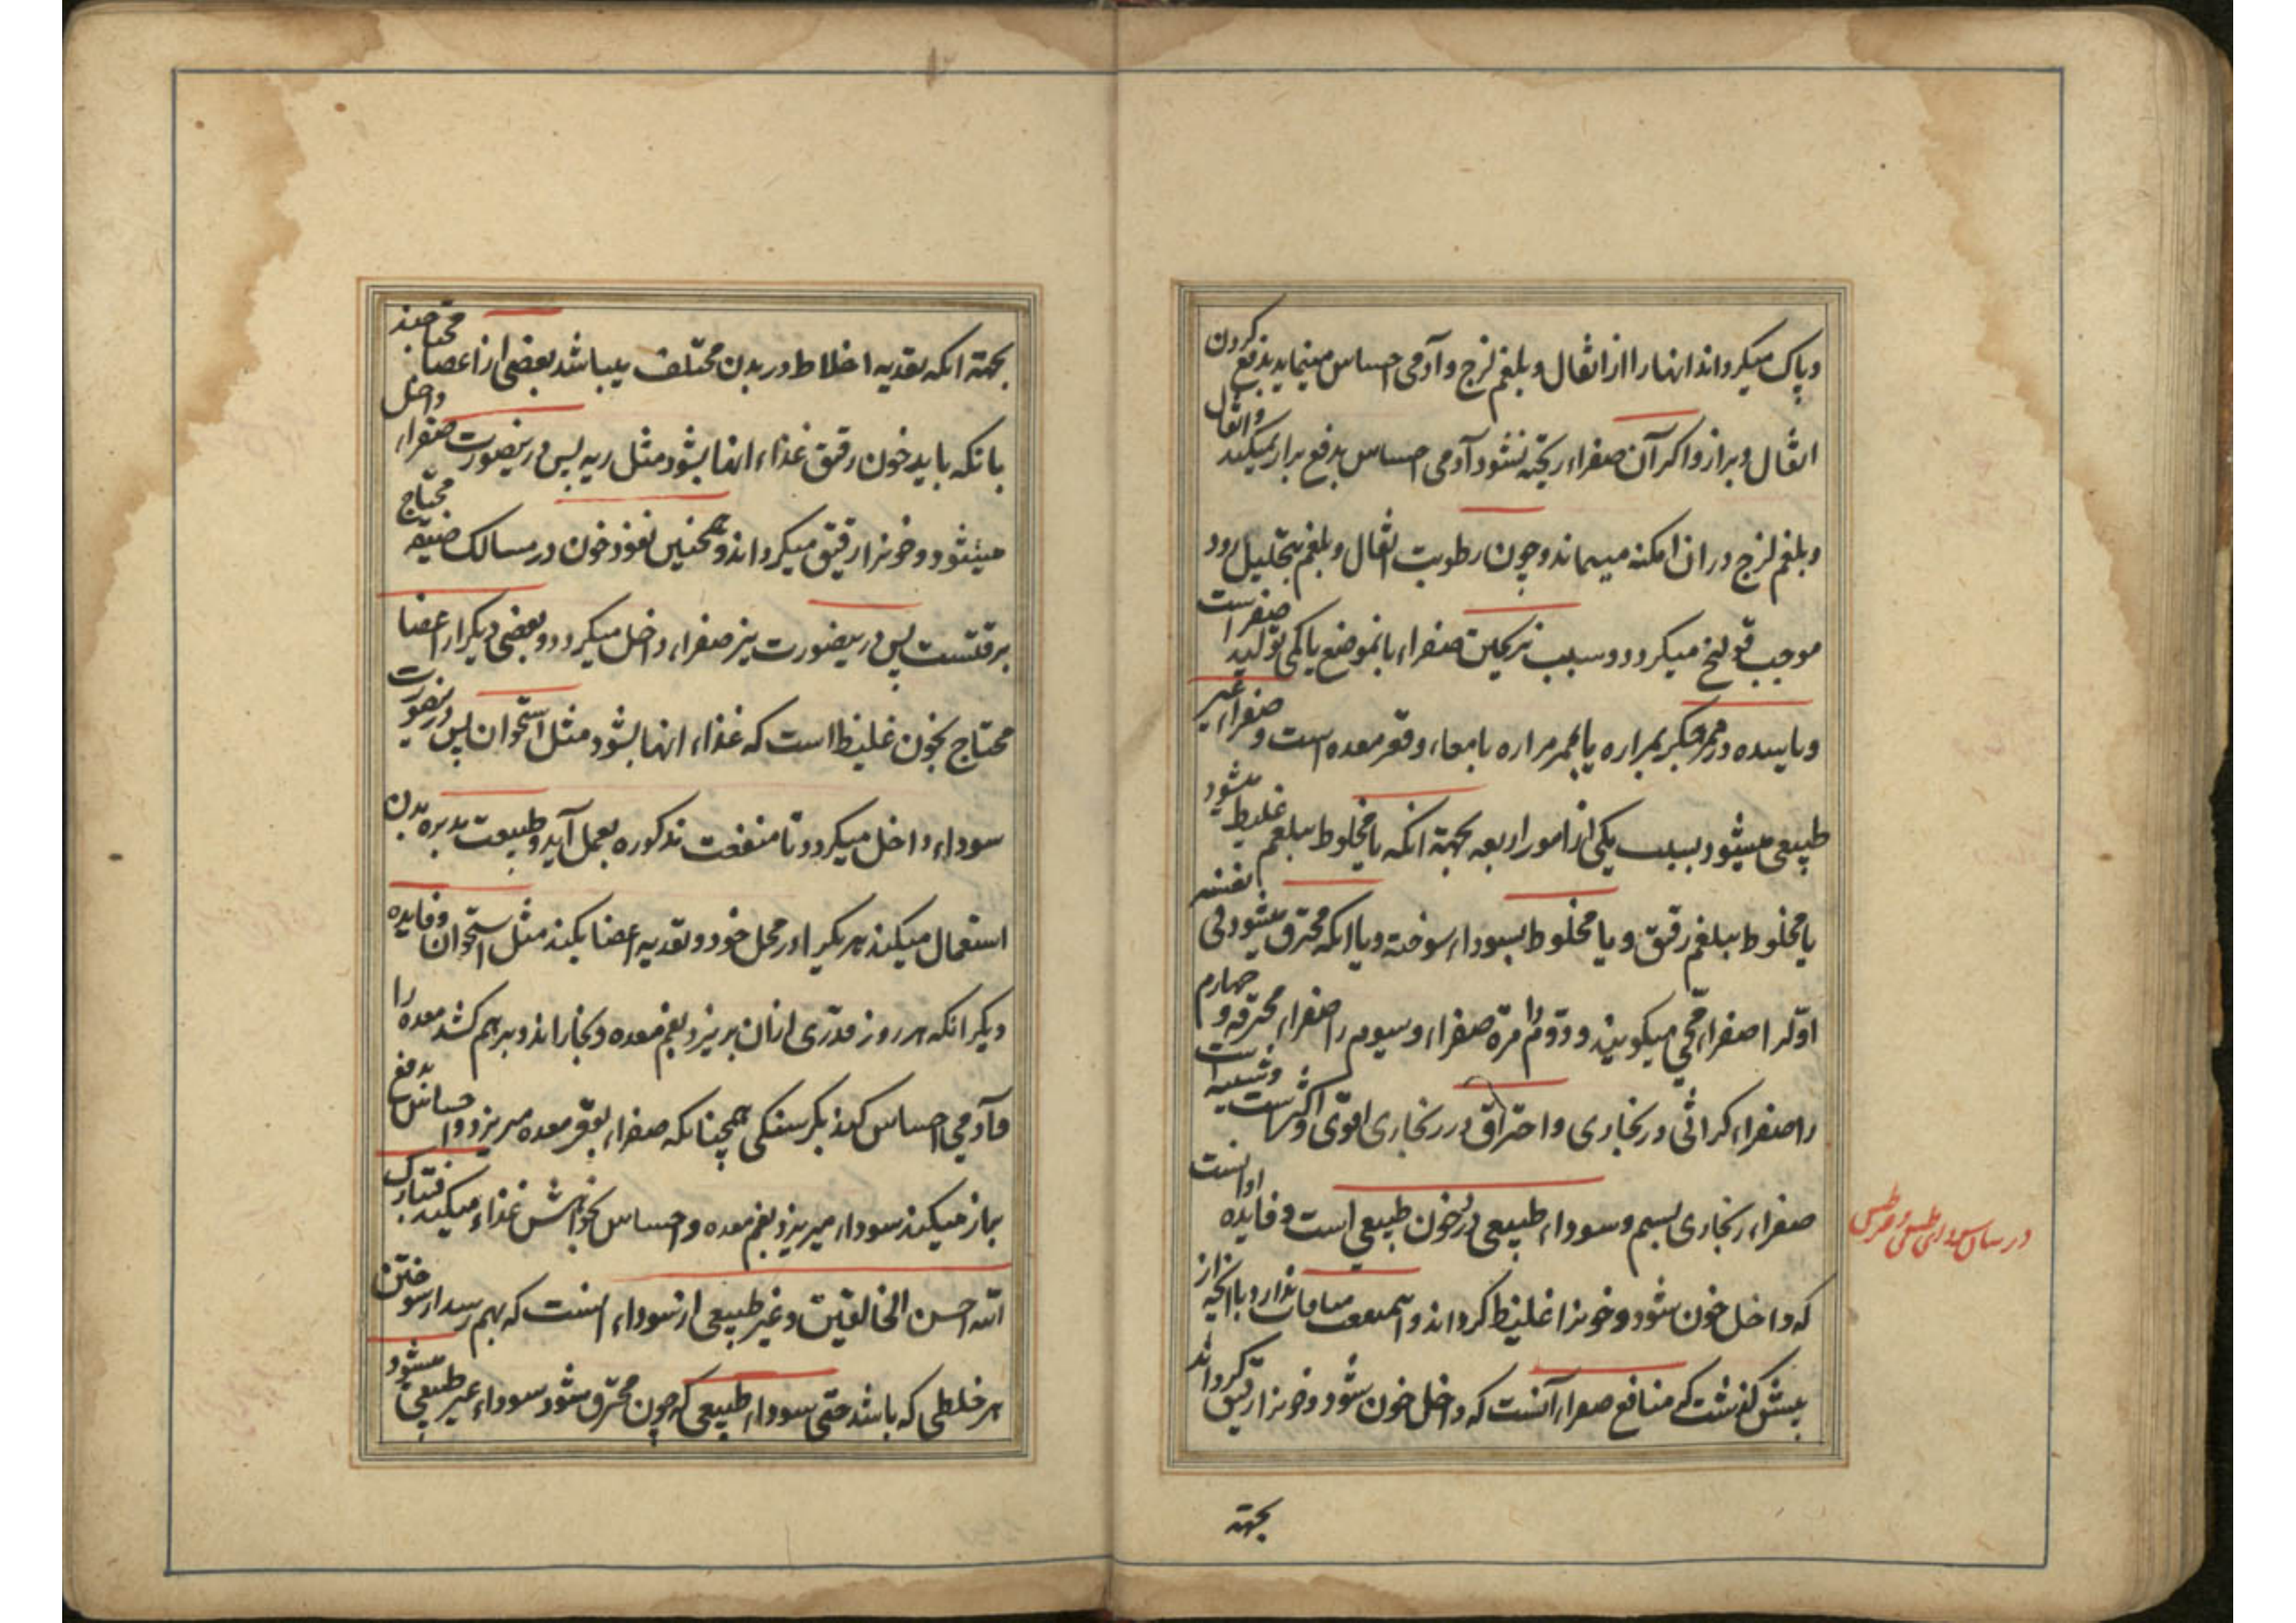 و پاک میکرداند انها را از اثفال و بلغم لزج و آدمی احساس مینماید بدفع کردن
اثفال و براز و اکر آن صفراء ریخته نشود آدمی احساس بدفع براز نمیکند و اثفال
و بلغم لزج در ان امکنه میماند و چون رطوبت اثفال و بلغم بتحلیل رود
موجب قولنج میکردد و سبب نریختن صفراء بانموضع یا کمی تولید صفراست
و یا سده در ممر جکر بمراره یا بممر مراره بامعاء و قعر معده است و صفراء غیر
طبیعی میشود بسبب یکی از امور اربعه بجهة انکه یا مخلوط ببلغم غلیظ میشود
یا مخلوط ببلغم رقیق و یا مخلوط بسوداء سوخته و یا انکه محترق میشود فی نفسه
اوّلرا صفراء محّی میکویند و دوّم را مرّة صفراء و سیوم را صفراء محترقه و چهارم
را صفراء کراثی و زنجاری و احتراق در زنجاری اقوی و اکثر است و شبیه است
صفراء زنجاری بسم و سوداء طبیعی دُرد خون طبیعی است و فایده او انست
که داخل خون شود و خونرا غلیظ کرداند و این منافات ندارد با انچه از
پیش کذشت که منافع صفراء آنست که داخل خون شود و خونرا رقیق کرداند
بجهة
بجهة انکه تغذیه اخلاط در بدن مختلف میباشد بعضی از اعضا محتاجند
بانکه باید خون رقیق غذاء انها بشود مثل ریه پس در ینصورت صفراء داخل
میشود و خونرا رقیق میکرداند و همچنین نفوذ خون در مسالک ضیقه محتاج
برقتست پس در ینصورت نیز صفراء داخل میکردد و بعضی دیکر از اعضا
محتاج بخون غلیظ است که غذاء انها بشود مثل استخوان پس در ینصورت
سوداء داخل میکردد تا منفعت مذکوره بعمل آید و طبیعت مدبره بدن
استعمال میکند هر یکیرا در محل خود و تغذیه اعضا بکند مثل استخوان و فایده
دیکر انکه هر روز قدری از ان بریزد بفم معده و بخاراند و بر هم کشد معده را
تا آدمی احساس کند بکرسنکی همچنانکه صفراء بقعر معده میریزد و احساس بدفع
براز میکند سوداء میریزد بفم معده و احساس بخواهش غذاء میکند فتبارک
الله احسن الخالقین و غیر طبیعی از سوداء انست که بهم رسد از سوختن
هر خلطی که باشد حتی سوداء طبیعی که چون محترق شود سوداء غیر طبیعی میشود